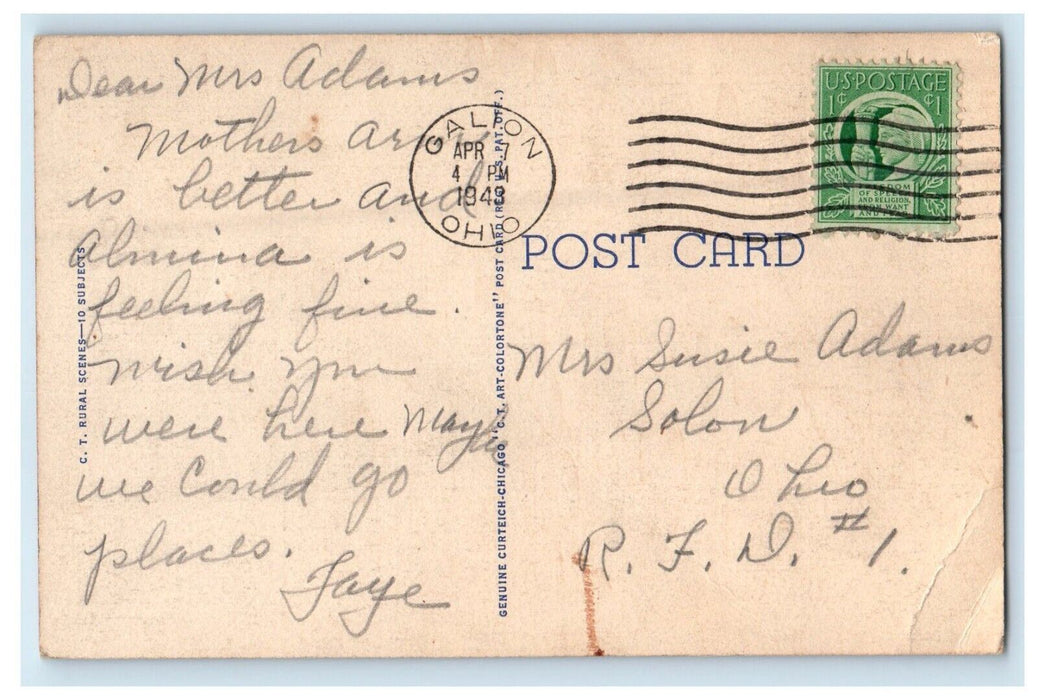 Dear Mrs Adams
Mothers arm
is better and
Almina is
feeling fine.
wish you
were here Maybe
we could go
places.
Faye
C. T. RURAL SCENES—10 SUBJECTS
GENUINE CURTEICH-CHICAGO "C.T. ART-COLORTONE" POST CARD (REG. U.S. PAT. OFF.)
GALION
APR 7
4 PM
1943
OHIO
U.S. POSTAGE
1¢ ¢1
FREEDOM
OF SPEECH
AND RELIGION,
FROM WANT
AND FEAR
POST CARD
Mrs Susie Adams
Solon
Ohio
R. F. D. #1.